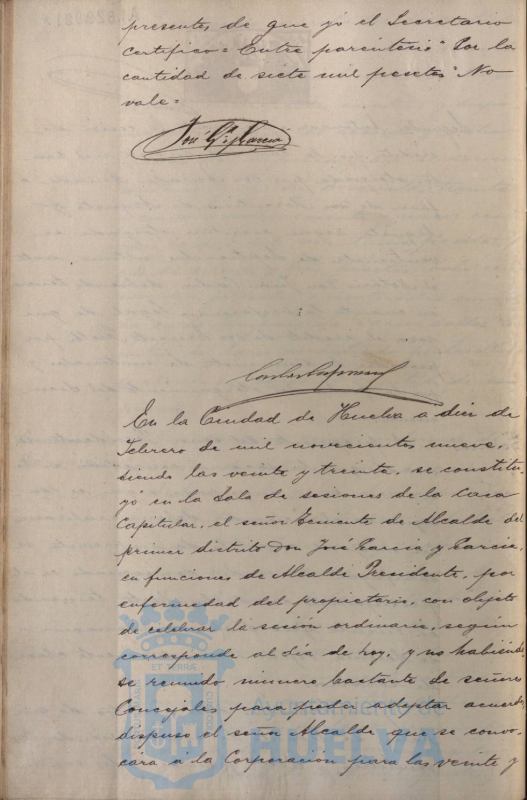 presentes de que yó el Secretario
certifico = Entre parentesis "Por la
cantidad de siete mil pesetas" No
vale =
José Gª y Garcia
En la Ciudad de Huelva a diez de
Febrero de mil novecientos nueve,
siendo las veinte y treinta, se constitu-
yó en la Sala de sesiones de la Casa
Capitular, el señor Teniente de Alcalde del
primer distrito Don José Garcia y Garcia,
en funciones de Alcalde Presidente, por
enfermedad del propietario, con objeto
de celebrar la sesión ordinaria, según
corresponde al día de hoy, y no habiendo-
se reunido número bastante de señores
Concejales para poder adoptar acuerdo,
dispuso el señor Alcalde que se convo-
cara á la Corporación para las veinte y
ET TERRÆ
Ayuntamiento de
HUELVA